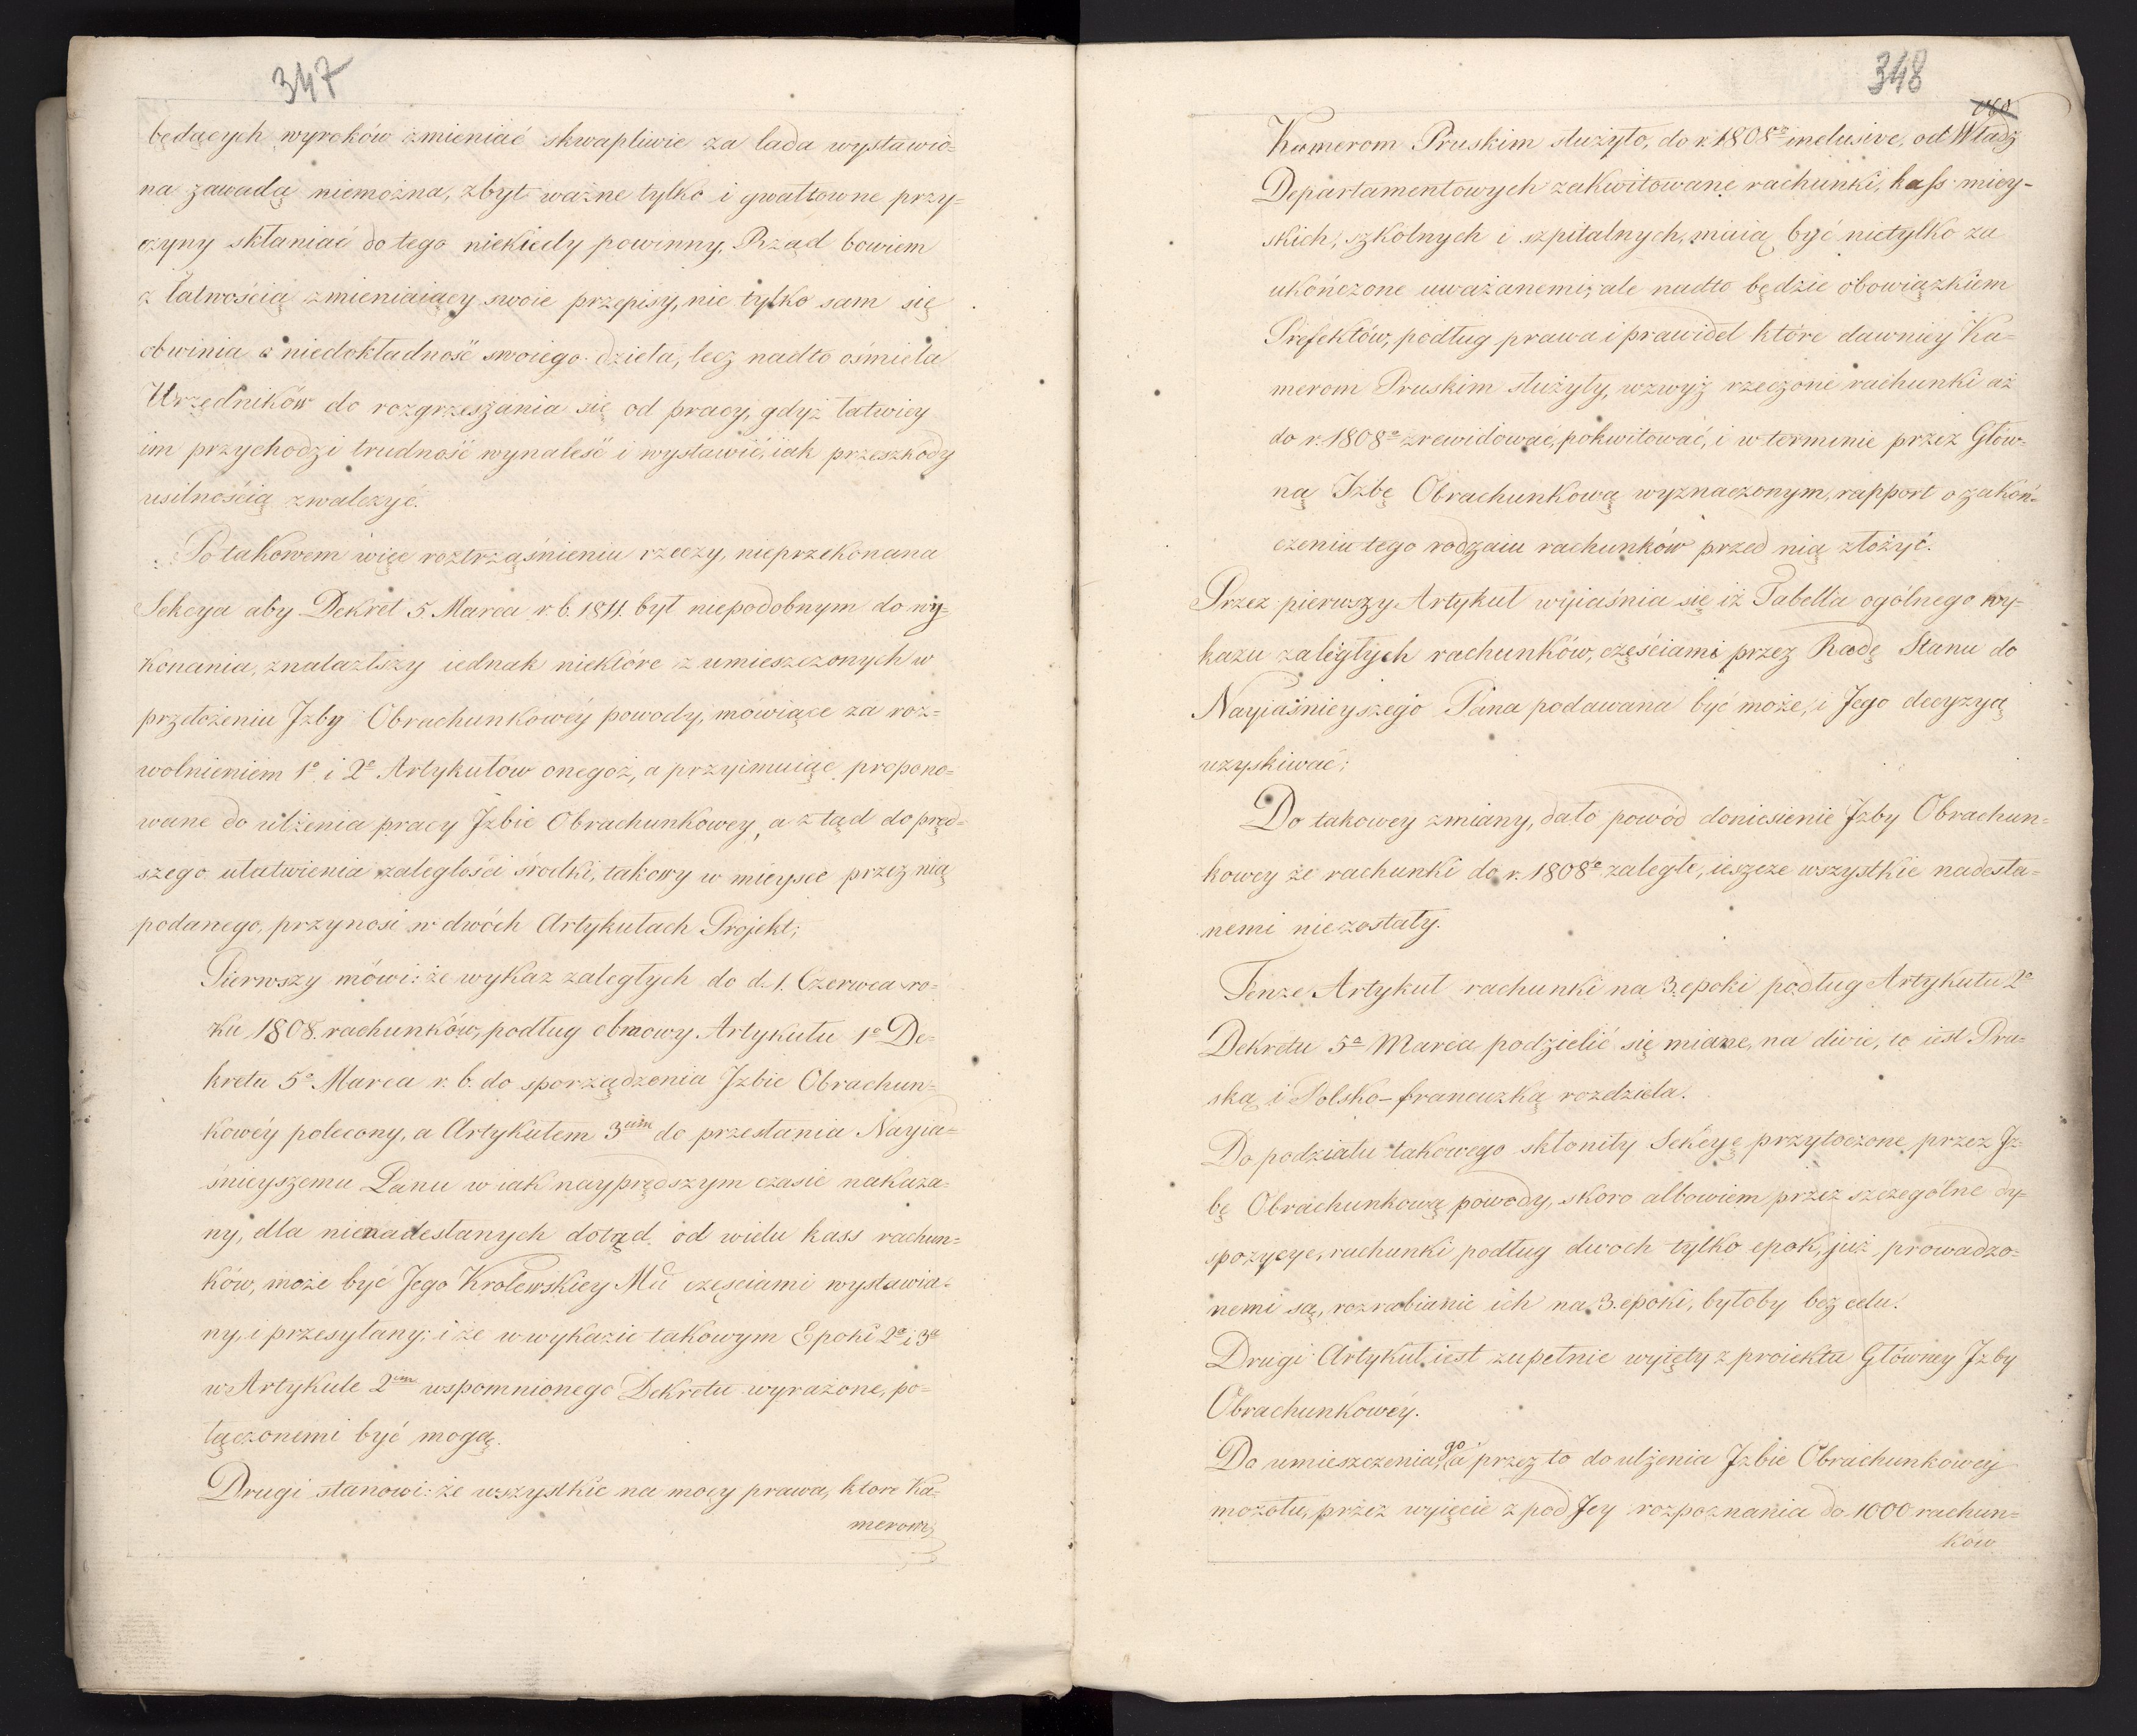 347
będących wyroków zmieniać skwapliwie za lada wystawio=
na zawadą niemożna, zbyt ważne tylko i gwałtowne przy=
czyny skłaniać do tego niekiedy powinny, Rząd bowiem
z łatwością zmieniaiący swoie przepisy, nie tylko sam się
obwinia o niedokładność swoiego dzieła, lecz nadto ośmiela
Urzędników do rozgrzeszania się od pracy, gdyż łatwiey
im przychodzi trudność wynaleść i wystawić, iak przeszkody
usilnością zwalczyć.
Po takowem więc roztrząśnieniu rzeczy, nieprzekonana
Sekcya aby Dekret 5. Marca r. b. 1811. był niepodobnym do wy=
konania, znalazłszy iednak niektóre z umieszczonych w
przełożeniu Jzby Obrachunkowéy powody, mówiące za roz=
wolnieniem 1º i 2º Artykułów onegoż, a przyimuiąc propono=
wane do ulżenia pracy Jzbie Obrachunkowey, a ztąd do pręd=
szego ułatwienia zaległości środki, takowy w mieysce przez nią
podanego, przynosi w dwóch Artykułach Projekt;
Pierwszy mówi: że wykaz zaległych do d. 1. Czerwca ro=
ku 1808. rachunków, podług obmowy Artykułu 1º De=
kretu 5º Marca r. b. do sporządzenia Jzbie Obrachun=
kowéy polecony, a Artykułem 3cim do przesłania Nayia=
śnieyszemu Panu w iak nayprędszym czasie nakaza=
ny, dla nienadesłanych dotąd od wielu kass rachun=
ków, może być Jego Krolewskiey Mci częściami wystawia=
ny, i przesyłany; i że w wykazie takowym Epoki 2ª i 3ª
w Artykule 2im wspomnionego Dekretu wyrażone, po=
łączonemi być mogą.
Drugi stanowi: że wszystkie na mocy prawa, ktore Ka=
merom
348
Kamerom Pruskim służyło, do r. 1808º inclusive, od Władz
Departamentowych zakwitowane rachunki, kass miey=
skich, szkolnych i szpitalnych, maią być nietylko za
ukończone uważanemi; ale nadto będzie obowiązkiem
Prefektów, podług prawa i prawideł które dawniey Ka=
merom Pruskim służyły, wzwyż rzeczone rachunki aż
do r. 1808º zrewidować, pokwitować, i w terminie przez Głów=
ną Jzbę Obrachunkową wyznaczonym, rapport o zakoń=
czeniu tego rodzaiu rachunków przed nią złożyć.
Przez pierwszy Artykuł wyiaśnia się iż Tabella ogólnego wy=
kazu zaległych rachunków, częściami przez Radę Stanu do
Nayiaśnieyszego Pana podawana być może, i Jego decyzyą
uzyskiwać;
Do takowey zmiany, dało powód doniesienie Jzby Obrachun=
kowey że rachunki do r. 1808º zaległe, ieszcze wszystkie nadesła=
nemi nie zostały.
Tenże Artykuł rachunki na 3. epoki podług Artykułu 2º
Dekretu 5º Marca podzielić się miane, na dwie, to iest Pru=
ską i Polsko-francuzką rozdziela.
Do podziału takowego skłoniły Sekcyę przytoczone przez Jz=
bę Obrachunkową powody, skoro albowiem przez szczególne dy=
spozycye, rachunki podług dwoch tylko epok, już prowadzo=
nemi są, rozrabianie ich na 3. epoki, byłoby bez celu.
Drugi Artykuł iest zupełnie wyięty z proiektu Główney Jzby
Obrachunkowéy.
Do umieszczenia go, a przez to do ulżenia Jzbie Obrachunkowey
mozołu, przez wyjęcie z pod Jey rozpoznania do 1000 rachun=
ków